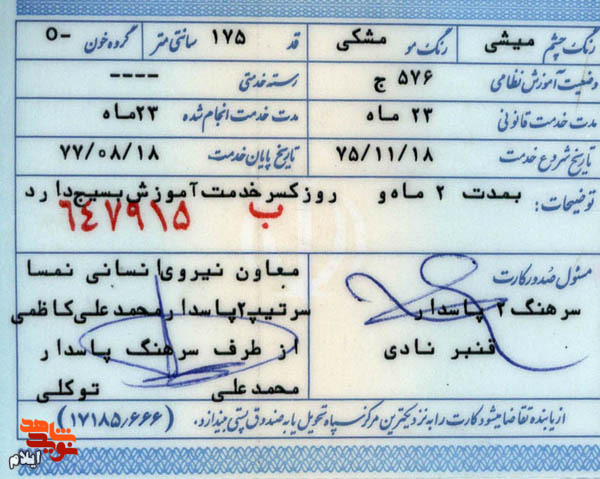 رنگ چشم میشی رنگ مو مشکی قد ۱۷۵ سانتی متر گروه خون O-
وضعیت آموزش نظامی ۵۷۶ ج رسته خدمتی ----
مدت خدمت قانونی ۲۳ ماه مدت خدمت انجام شده ۲۳ماه
تاریخ شروع خدمت ۷۵/۱۱/۱۸ تاریخ پایان خدمت ۷۷/۰۸/۱۸
توضیحات: بمدت ۲ ماه و روز کسر خدمت آموزش بسیج دارد
ب ۶۴۷۹۱۵
مسئول صدور کارت
سرهنگ ۲ پاسدار
قنبر نادی
معاون نیروی انسانی نمسا
سرتیپ۲پاسدار محمدعلی کاظمی
از طرف سرهنگ پاسدار
محمدعلی توکلی
از یابنده تقاضا میشود کارت را به نزدیکترین مرکز سپاه تحویل یا به صندوق پستی بیندازد. (۱۷۱۸۵٫۶۶۶)
نوید شاهد
ایلام